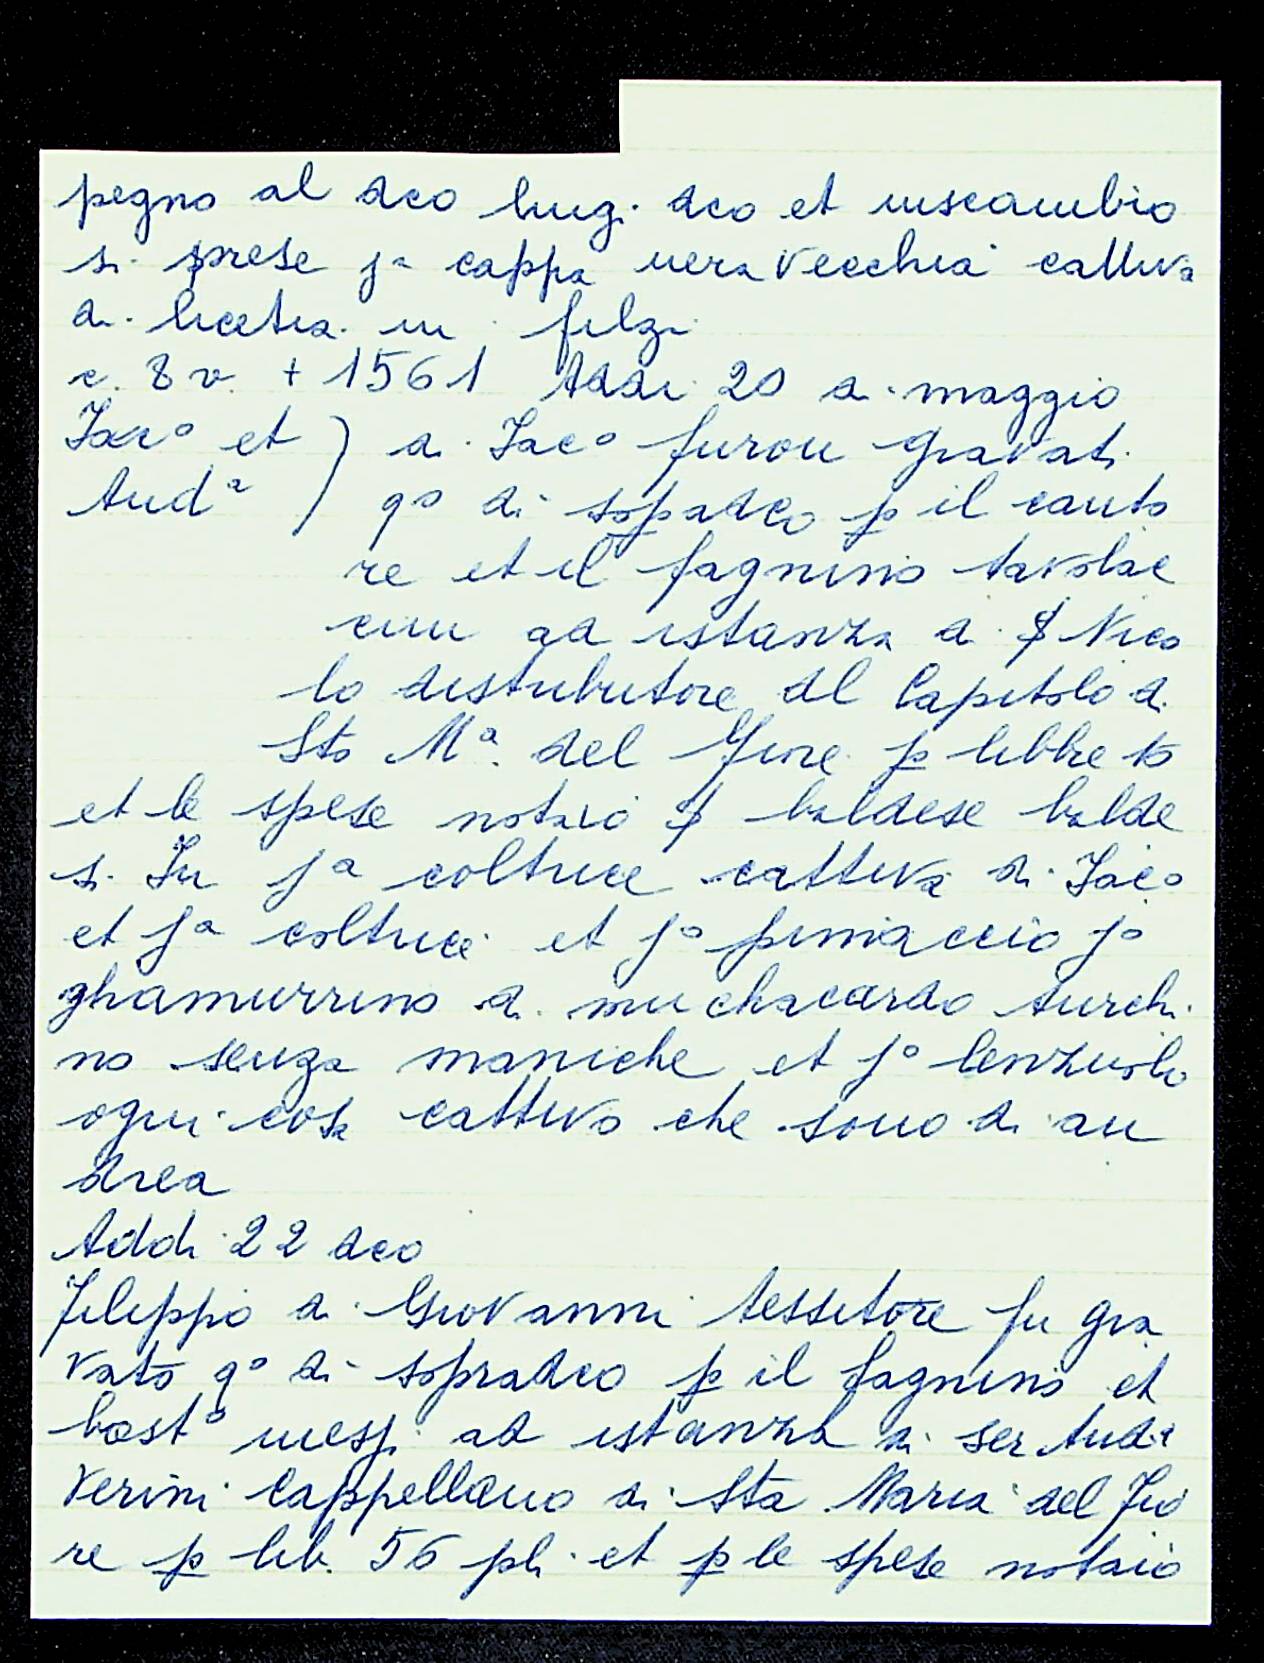 pegno al dco luigi dco et inscambio
si prese ja cappa nera vecchia cattiva
di licetia in filzi
c. 8 v. + 1561 Addi 20 di maggio
Jaco et ) di Jaco furon gravati
Anda ) qo di sopradco p il canto
re et il fagnino tavolac
cini ad istanza di $ Nico
lo distributore del Capitolo di
Sta Ma. del Fiore p libbre 15
et le spese notaio $ baldese balde
si In ja coltrice cattiva di Jaco
et ja coltrice et jo pimaccio jo
ghamurrino di muchacardo turchi
no senza maniche et jo lenzuolo
ogni cosa cattivo che sono di an
drea
Addi 22 dco
Filippo di Giovanni tessitore fu gra
vato qo di sopradco p il fagnino et
basto mesp. ad istanza di ser Anda
Verini Cappellano di Sta Maria del Fio
re p lib. 56 pli et p le spese notaio